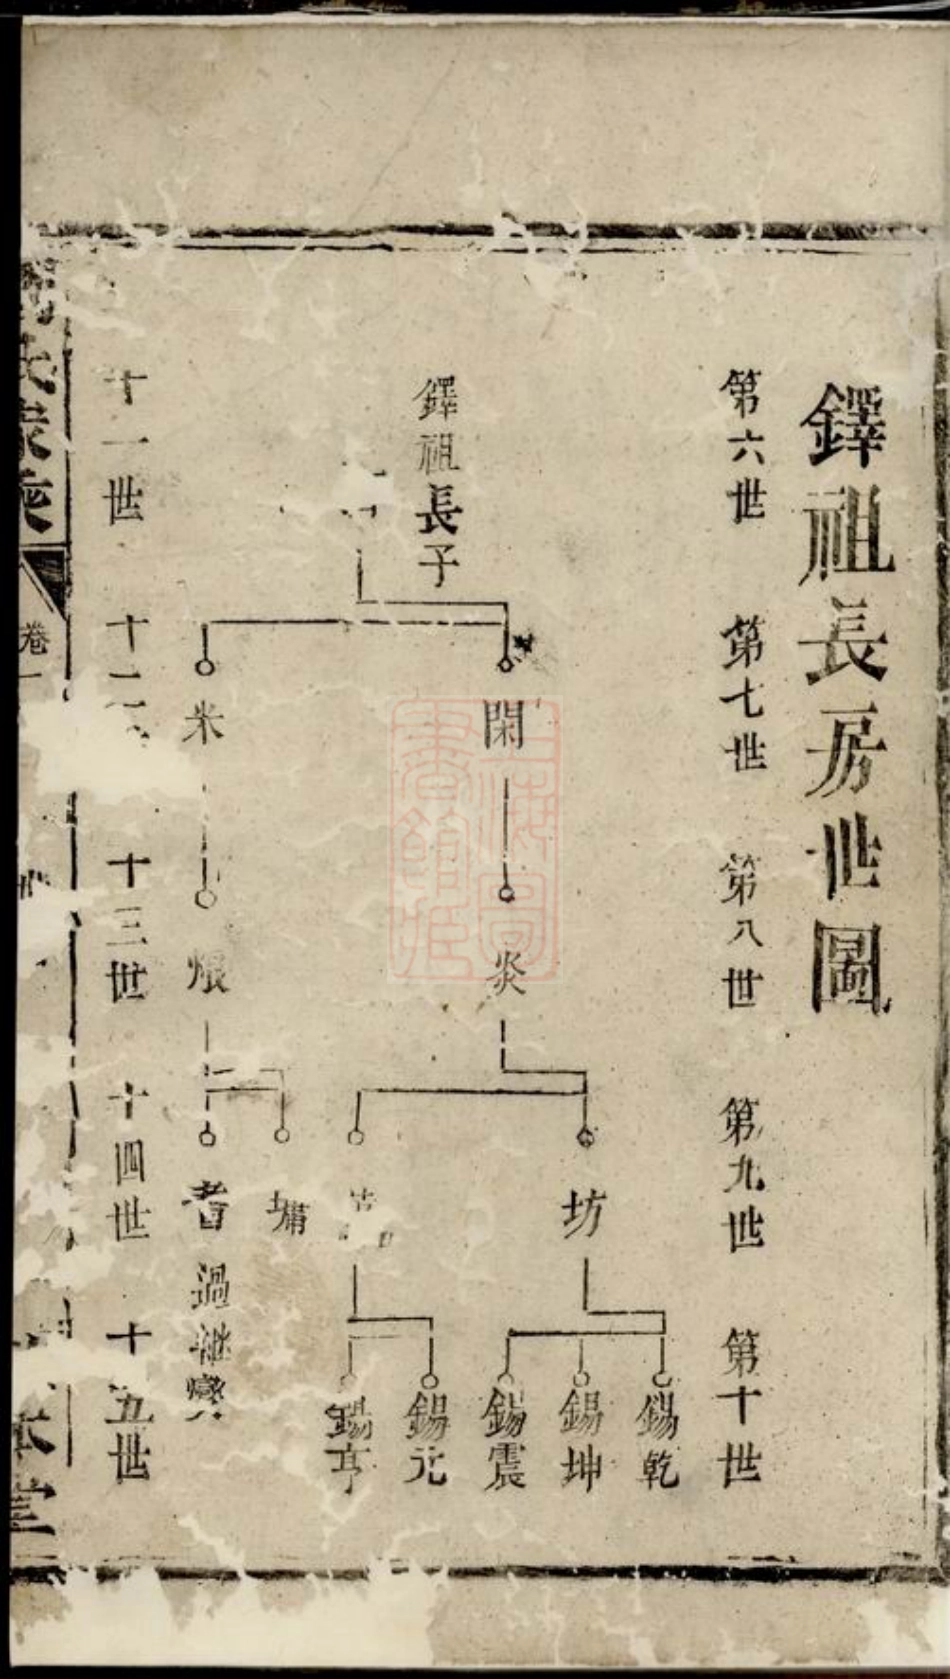 鐸祖長房世圖
第六世 第七世 第八世 第九世 第十世
鐸祖長子
閑 炎 坊
錫乾
錫坤
錫震
錫元
錫亨
墉
米
耆 過繼
十一世 十二 十三世 十四世 十五世
氏家乘
卷一
堂
上海圖書館藏